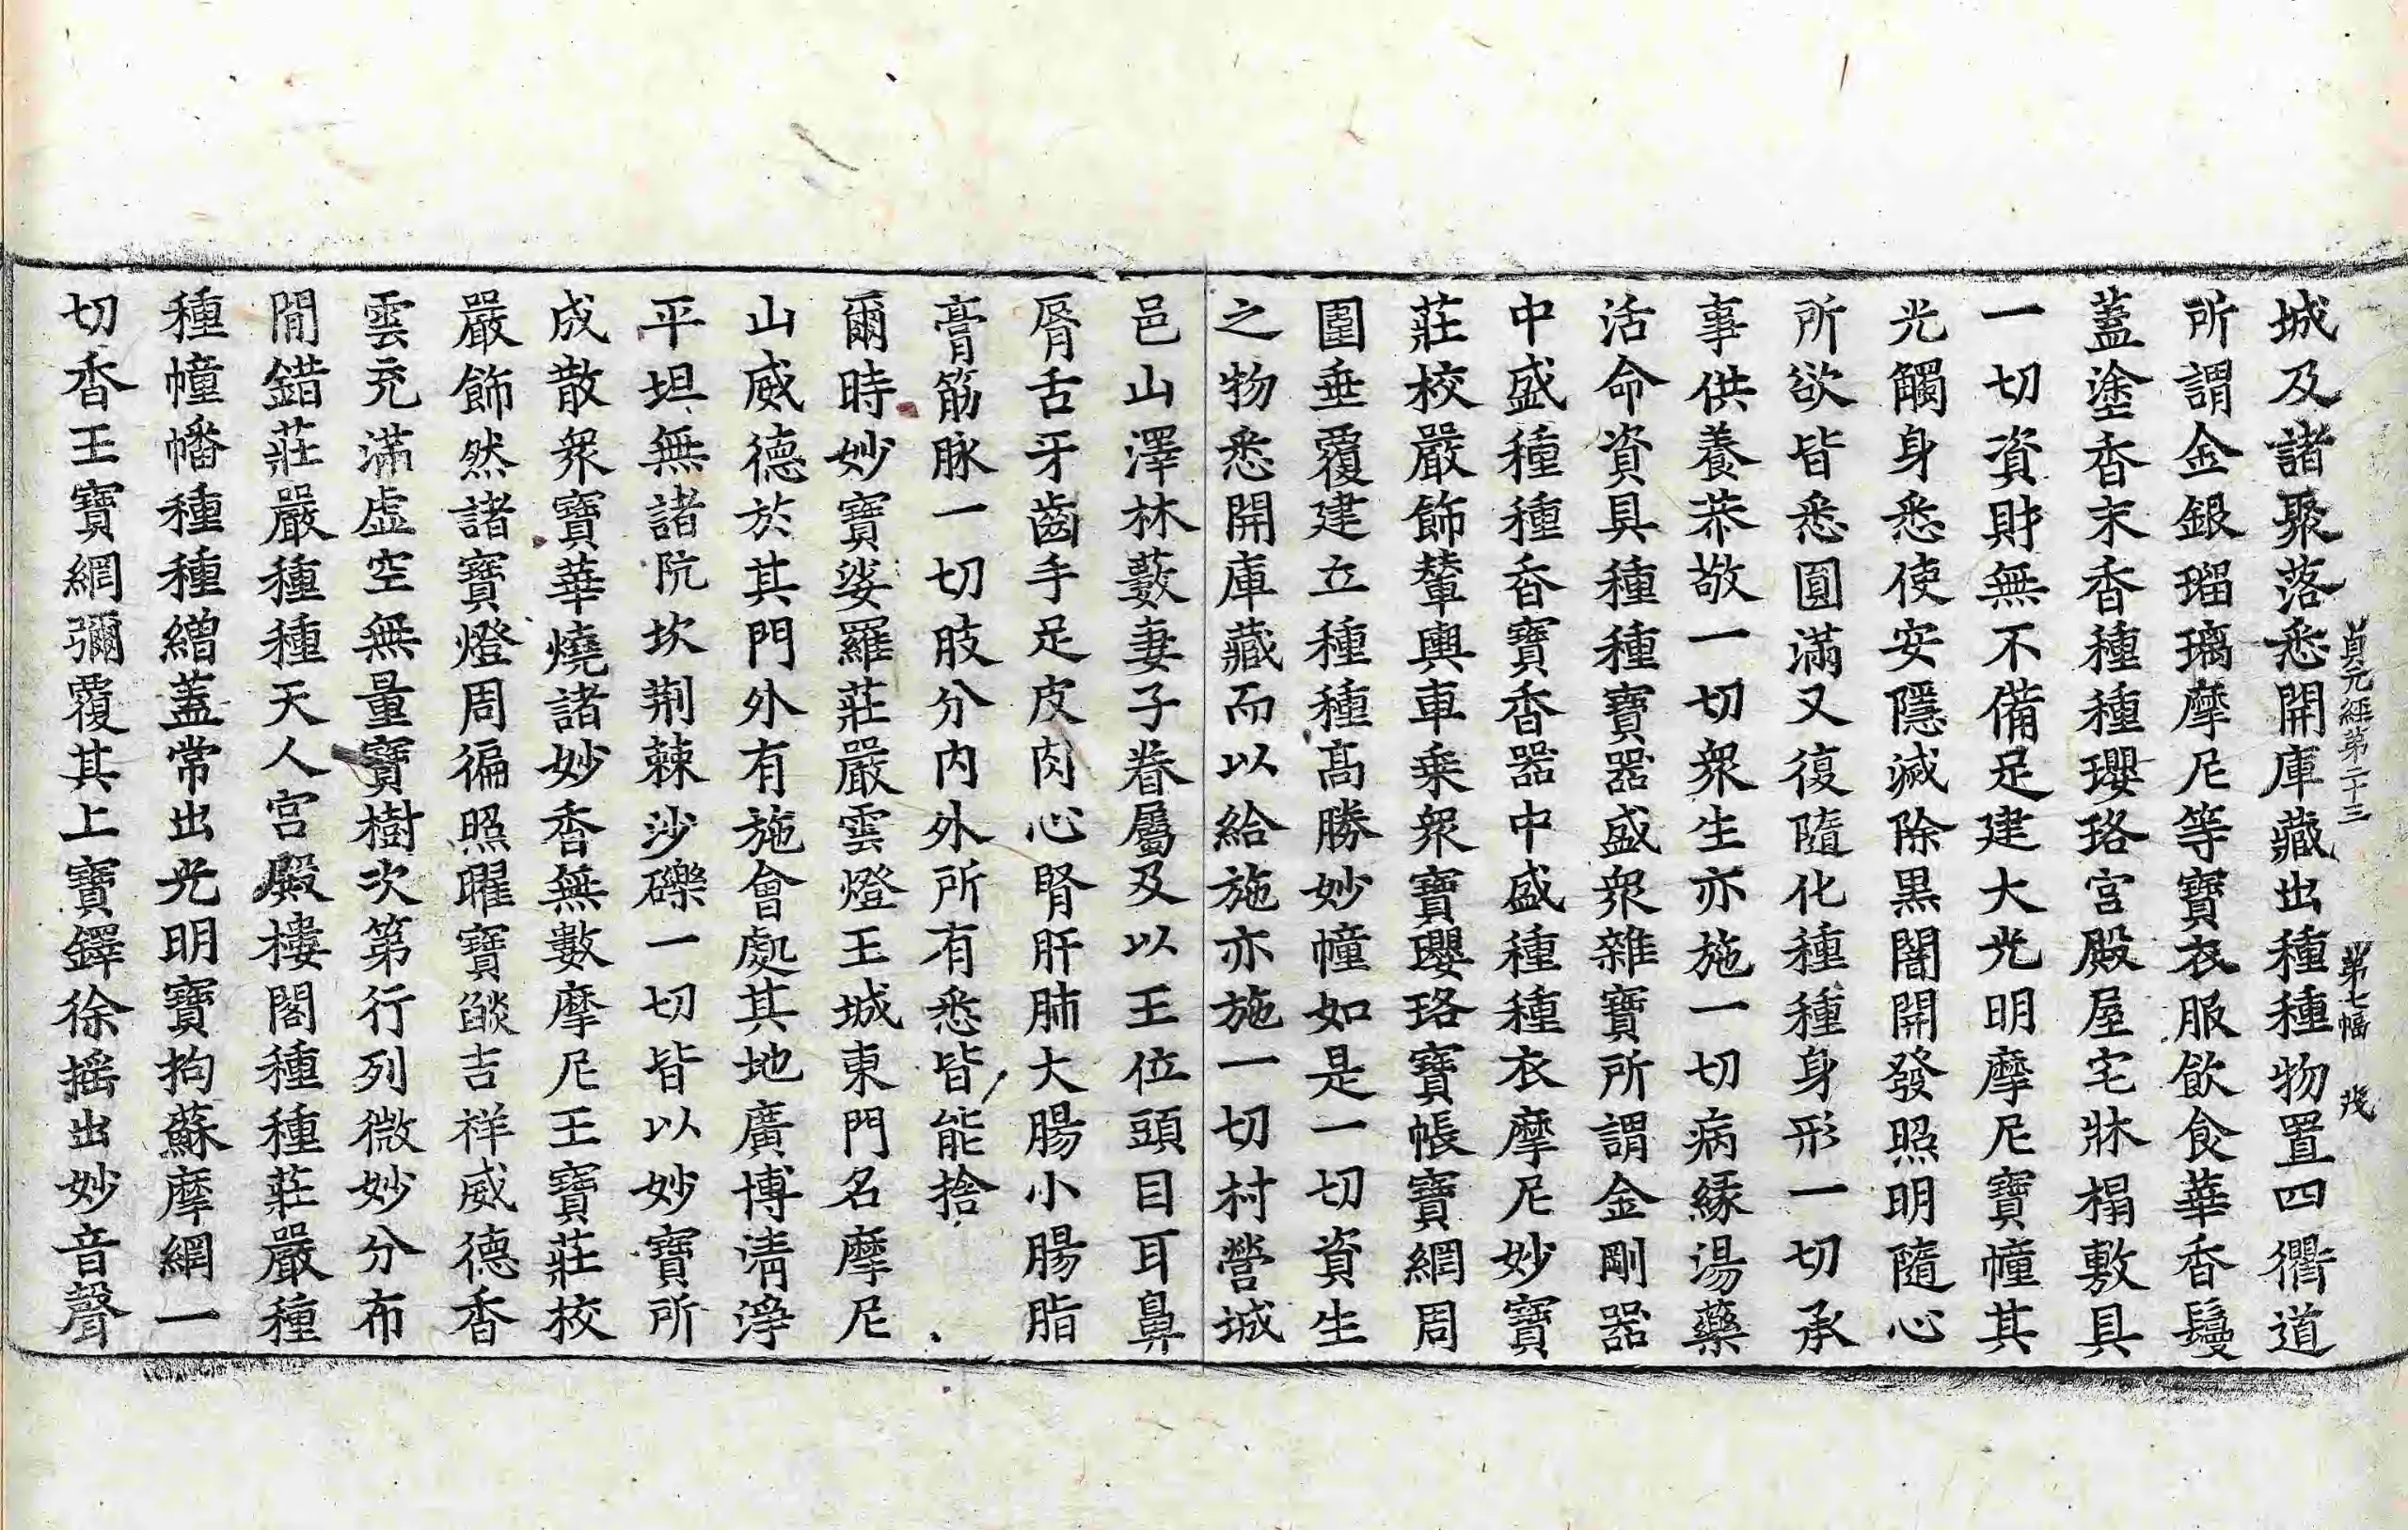 貞元經第二十三 第七幅 茂
城及諸聚落悉開庫藏出種種物置四衢道
所謂金銀瑠璃摩尼等寶衣服飲食華香鬘
蓋塗香末香種種瓔珞宮殿屋宅牀榻敷具
一切資財無不備足建大光明摩尼寶幢其
光觸身悉使安隱滅除黒闇開發照明隨心
所欲皆悉圓滿又復隨化種種身形一切承
事供養恭敬一切衆生亦施一切病緣湯藥
活命資具種種寶器盛衆雜寶所謂金剛器
中盛種種香寶香器中盛種種衣摩尼妙寶
莊校嚴飾輦輿車乘衆寶瓔珞寶帳寶網周
圍垂覆建立種種高勝妙幢如是一切資生
之物悉開庫藏而以給施亦施一切村營城
邑山澤林藪妻子眷屬及以王位頭目耳鼻
脣舌牙齒手足皮肉心腎肝肺大腸小腸脂
膏筋脉一切肢分內外所有悉皆能捨
爾時妙寶娑羅莊嚴雲燈王城東門名摩尼
山威德於其門外有施會處其地廣博淸淨
平坦無諸阬坎荆棘沙礫一切皆以妙寶所
成散衆寶華燒諸妙香無數摩尼王寶莊校
嚴飾然諸寶燈周徧照曜寶燄吉祥威德香
雲充滿虛空無量寶樹次第行列微妙分布
閒錯莊嚴種種天人宮殿樓閣種種莊嚴種
種幢幡種種繒蓋常出光明寶拘蘇摩網一
切香王寶網彌覆其上寶鐸徐搖出妙音聲